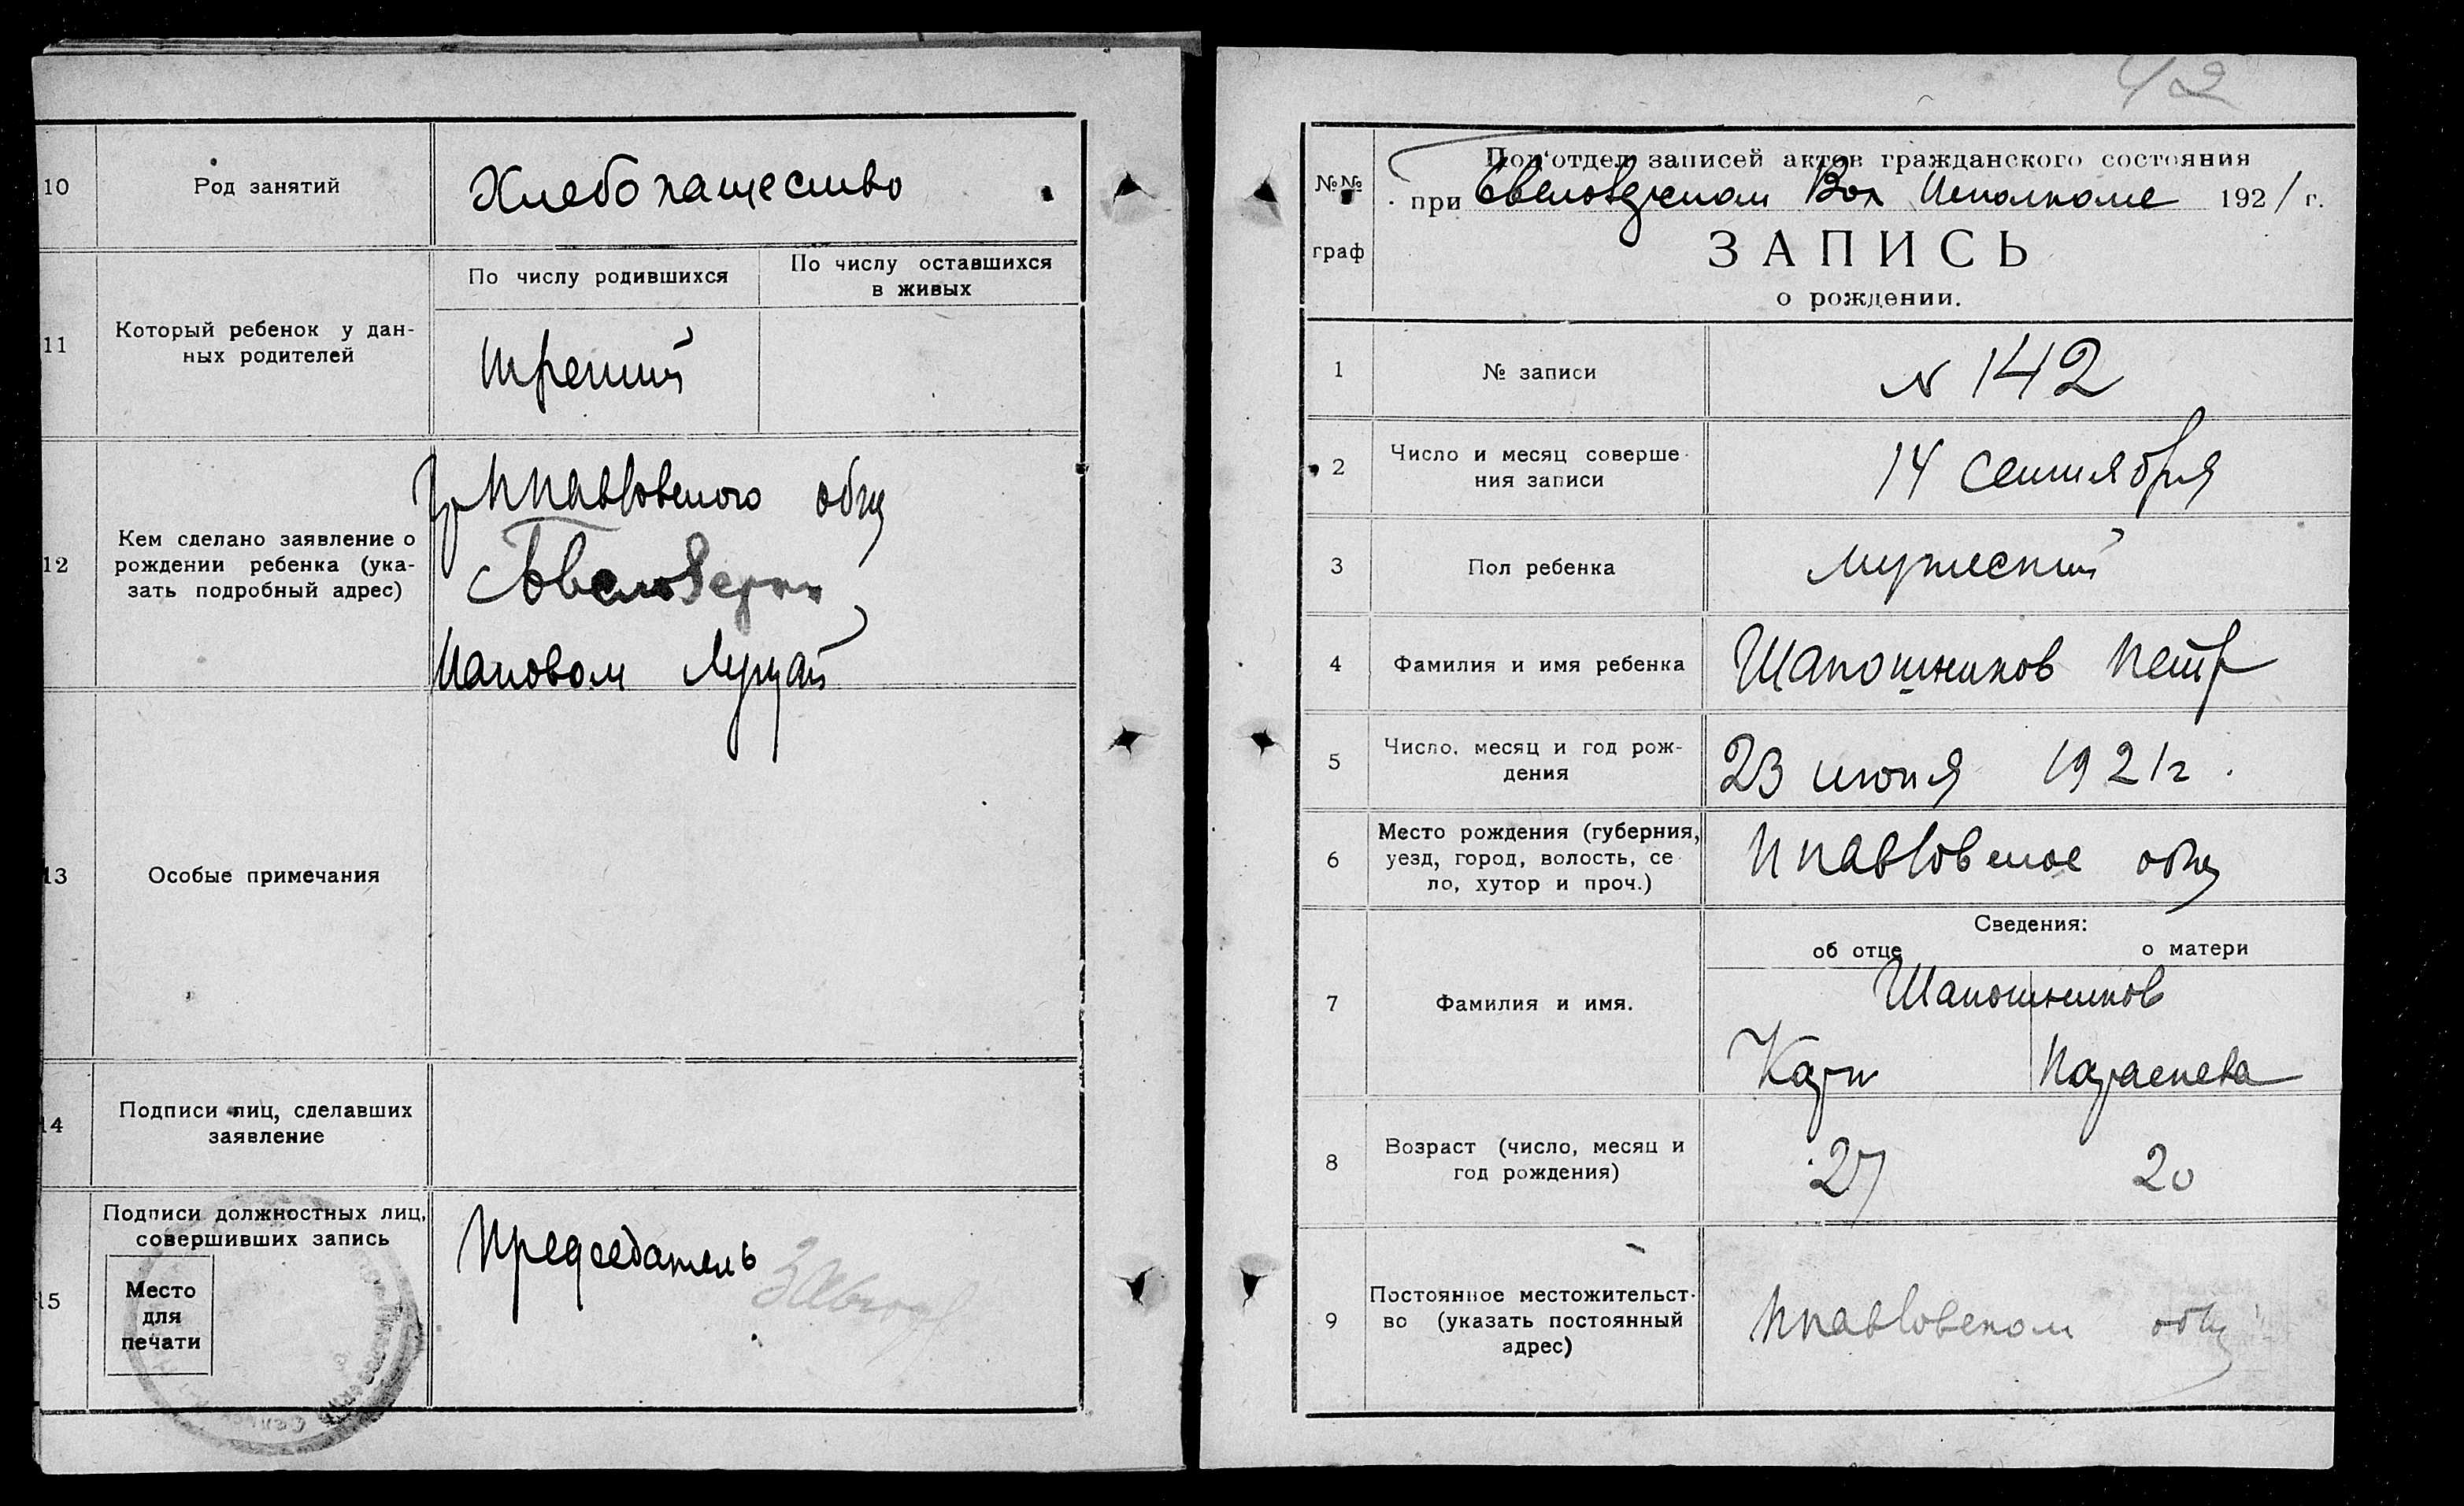 10
Род занятий
Хлебопашество
11
Который ребенок у дан-
ных родителей
По числу родившихся
По числу оставшихся
в живых
третий
12
Кем сделано заявление о
рождении ребенка (ука-
зать подробный адрес)
общ
13
Особые примечания
14
Подписи лиц, сделавших
заявление
15
Подписи должностных лиц,
совершивших запись
Место
для
печати
Председатель
42
№№
граф
Под'отдел записей актов гражданского состояния
при Вол Исполкоме 1921 г.
ЗАПИСЬ
о рождении.
1
№ записи
N 142
2
Число и месяц соверше-
ния записи
14 сентября
3
Пол ребенка
мужеский
4
Фамилия и имя ребенка
Шапошников Петр
5
Число, месяц и год рож-
дения
23 июня 1921 г.
6
Место рождения (губерния,
уезд, город, волость, се-
ло, хутор и проч.)
общ
Сведения:
об отце
о матери
7
Фамилия и имя.
Шапошников
Карп
Параскева
8
Возраст (число, месяц и
год рождения)
27
20
9
Постоянное местожительст-
во (указать постоянный
адрес)
общ